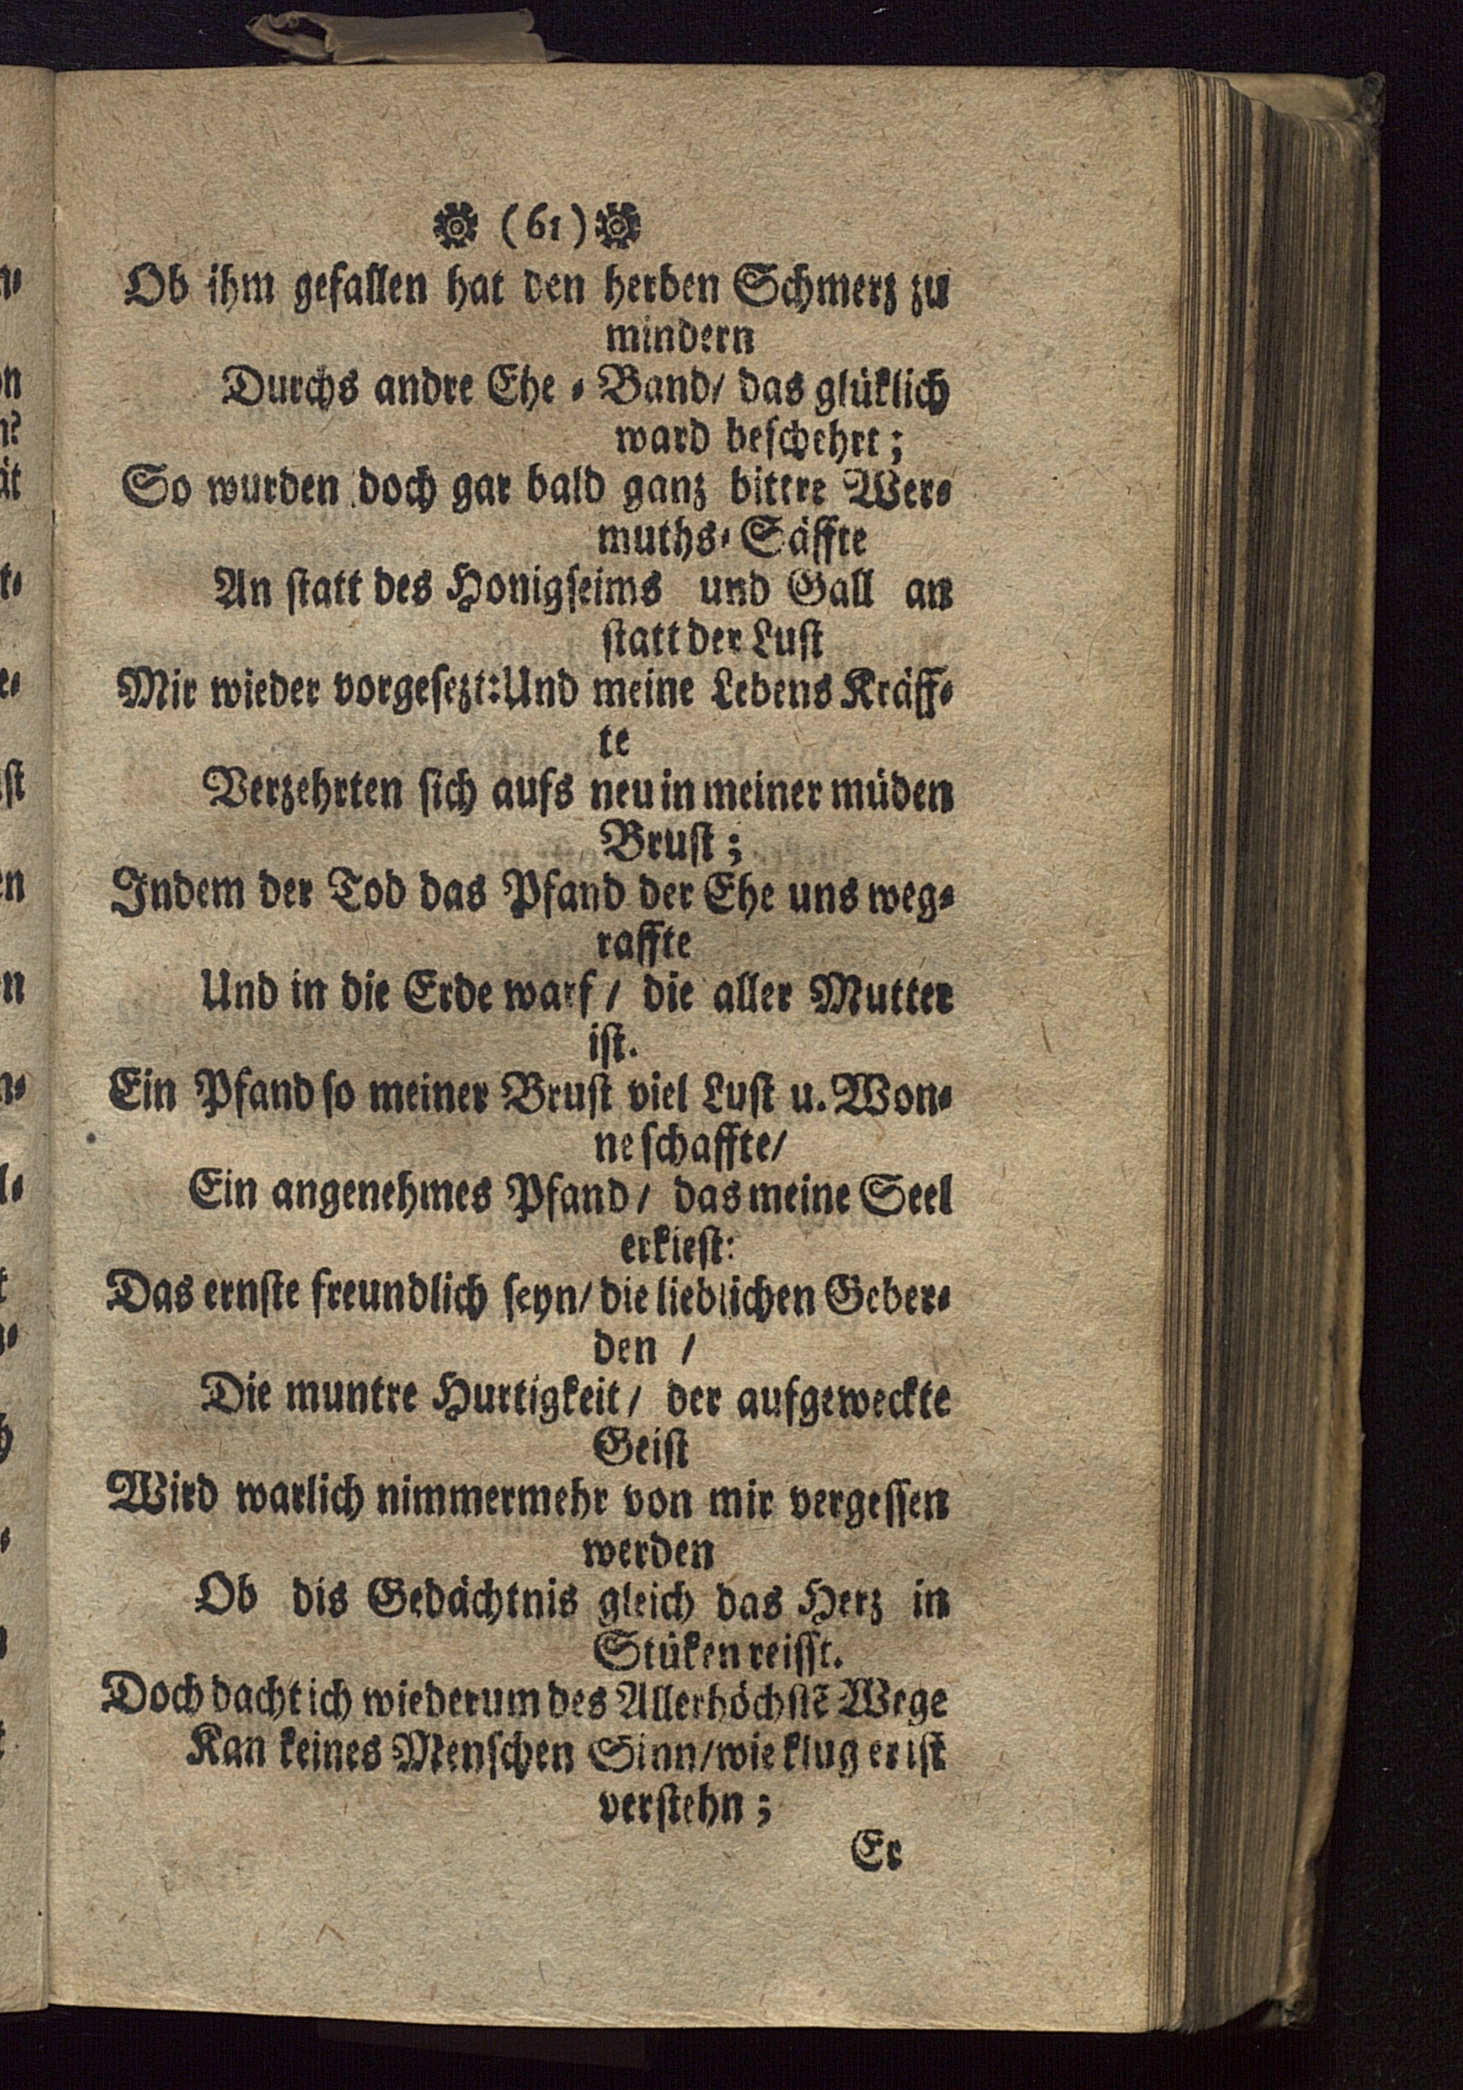 (61)
Ob ihm gefallen hat den herben Schmerz zu
mindern
Durchs andre Ehe⸗Band/ das glüklich
ward beschehrt;
So wurden doch gar bald ganz bittre Wer⸗
muths⸗Säffte
An statt des Honigseims und Gall an
statt der Lust
Mir wieder vorgesezt: Und meine Lebens Kräff⸗
te
Verzehrten sich aufs neu in meiner müden
Brust;
Indem der Tod das Pfand der Ehe uns weg⸗
raffte
Und in die Erde warf / die aller Mutter
ist.
Ein Pfand so meiner Brust viel Lust u. Won⸗
ne schaffte/
Ein angenehmes Pfand/ das meine Seel
erkiest:
Das ernste freundlich seyn/ die lieblichen Geber⸗
den /
Die muntre Hurtigkeit/ der aufgeweckte
Geist
Wird warlich nimmermehr von mir vergessen
werden
Ob dis Gedächtnis gleich das Herz in
Stüken reisst.
Doch dacht ich wiederum des Allerhöchstẽ Wege
Kan keines Menschen Sinn/ wie klug er ist
verstehn;
Er